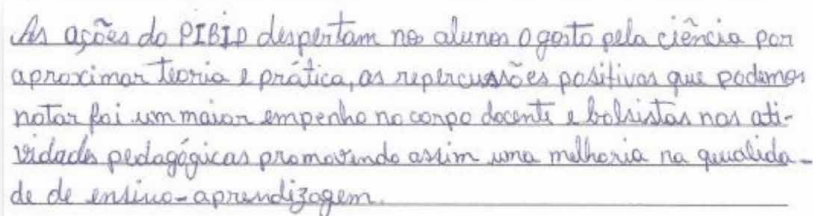 As ações do PIBID despertam nos alunos o gosto pela ciência por
aproximar teoria e prática, as repercussões positivas que podemos
notar foi um maior empenho no corpo docente e bolsistas nas ati-
vidades pedagógicas promovendo assim uma melhoria na qualida-
de de ensino-aprendizagem.